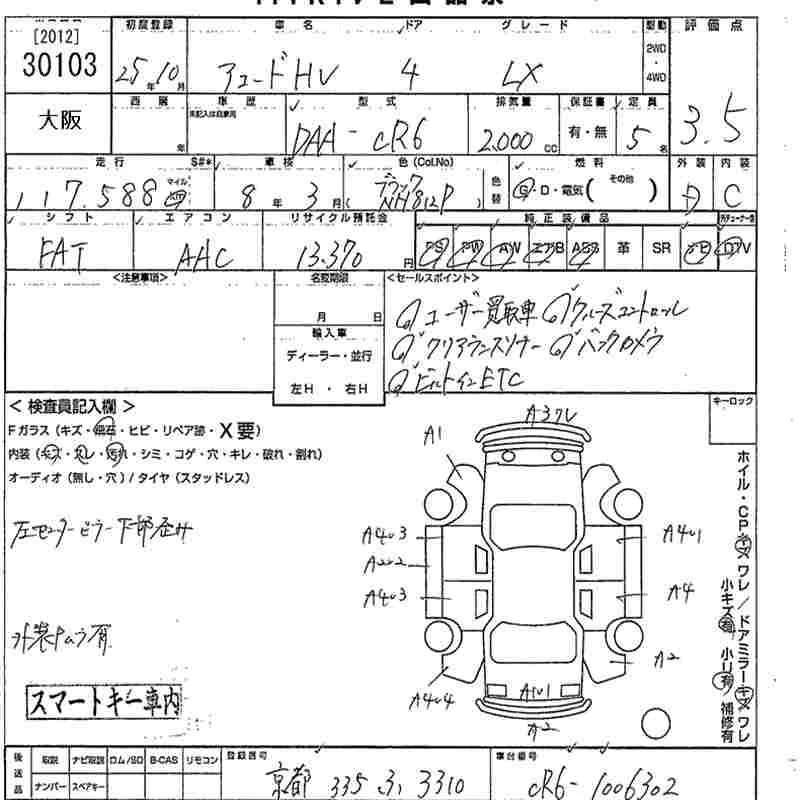 [2012]
30103
初度登録 車名 ドア グレード 駆動 評価点
25年10月 アコードHV 4 LX 2WD・4WD 3.5
大阪
車歴 型式 排気量 保証書 定員
年 未記入は自家用 DAA-CR6 2,000cc 有・無 5名
走行 S#* 車検 色(Col.No) 燃料 外装 内装
117,588 マイル km 8年3月 (ブラック NH812P) 色替 G・D・電気( その他 ) D C
シフト エアコン リサイクル預託金 純正装備品
FAT AAC 13,370円 PS PW AW エアB ABS 革 SR ナビ DTV
<注意事項> 名変期限 <セールスポイント>
月 日 ①ユーザー買取車 ①クルーズコントロール
輸入車 ①クリアランスソナー ①バックカメラ
ディーラー・並行 ①ビルトインETC
左H ・ 右H
< 検査員記入欄 > キーロック
Fガラス(キズ・飛石・ヒビ・リペア跡・X要)
内装(キズ・スレ・汚れ・シミ・コゲ・穴・キレ・破れ・割れ)
オーディオ(無し・穴)/タイヤ(スタッドレス)
左センターピラー下部歪み
外装ムラ有
スマートキー車内
A1
A403 A401
A202
A403 A4
A2
A404 A101
A2
ホイル・CPキズ ワレ/ドアミラーキズ ワレ
小キズ有 小凹有 補修有
後送品 取説 ナビ取説 ロム/SD B-CAS リモコン 登録番号 車台番号
ナンバー スペアキー 京都 335 す 3310 CR6-1006302